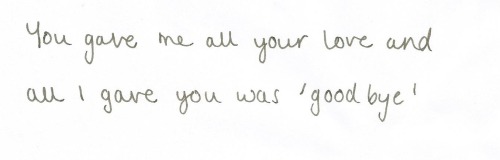 You gave me all your love and
all I gave you was 'goodbye'